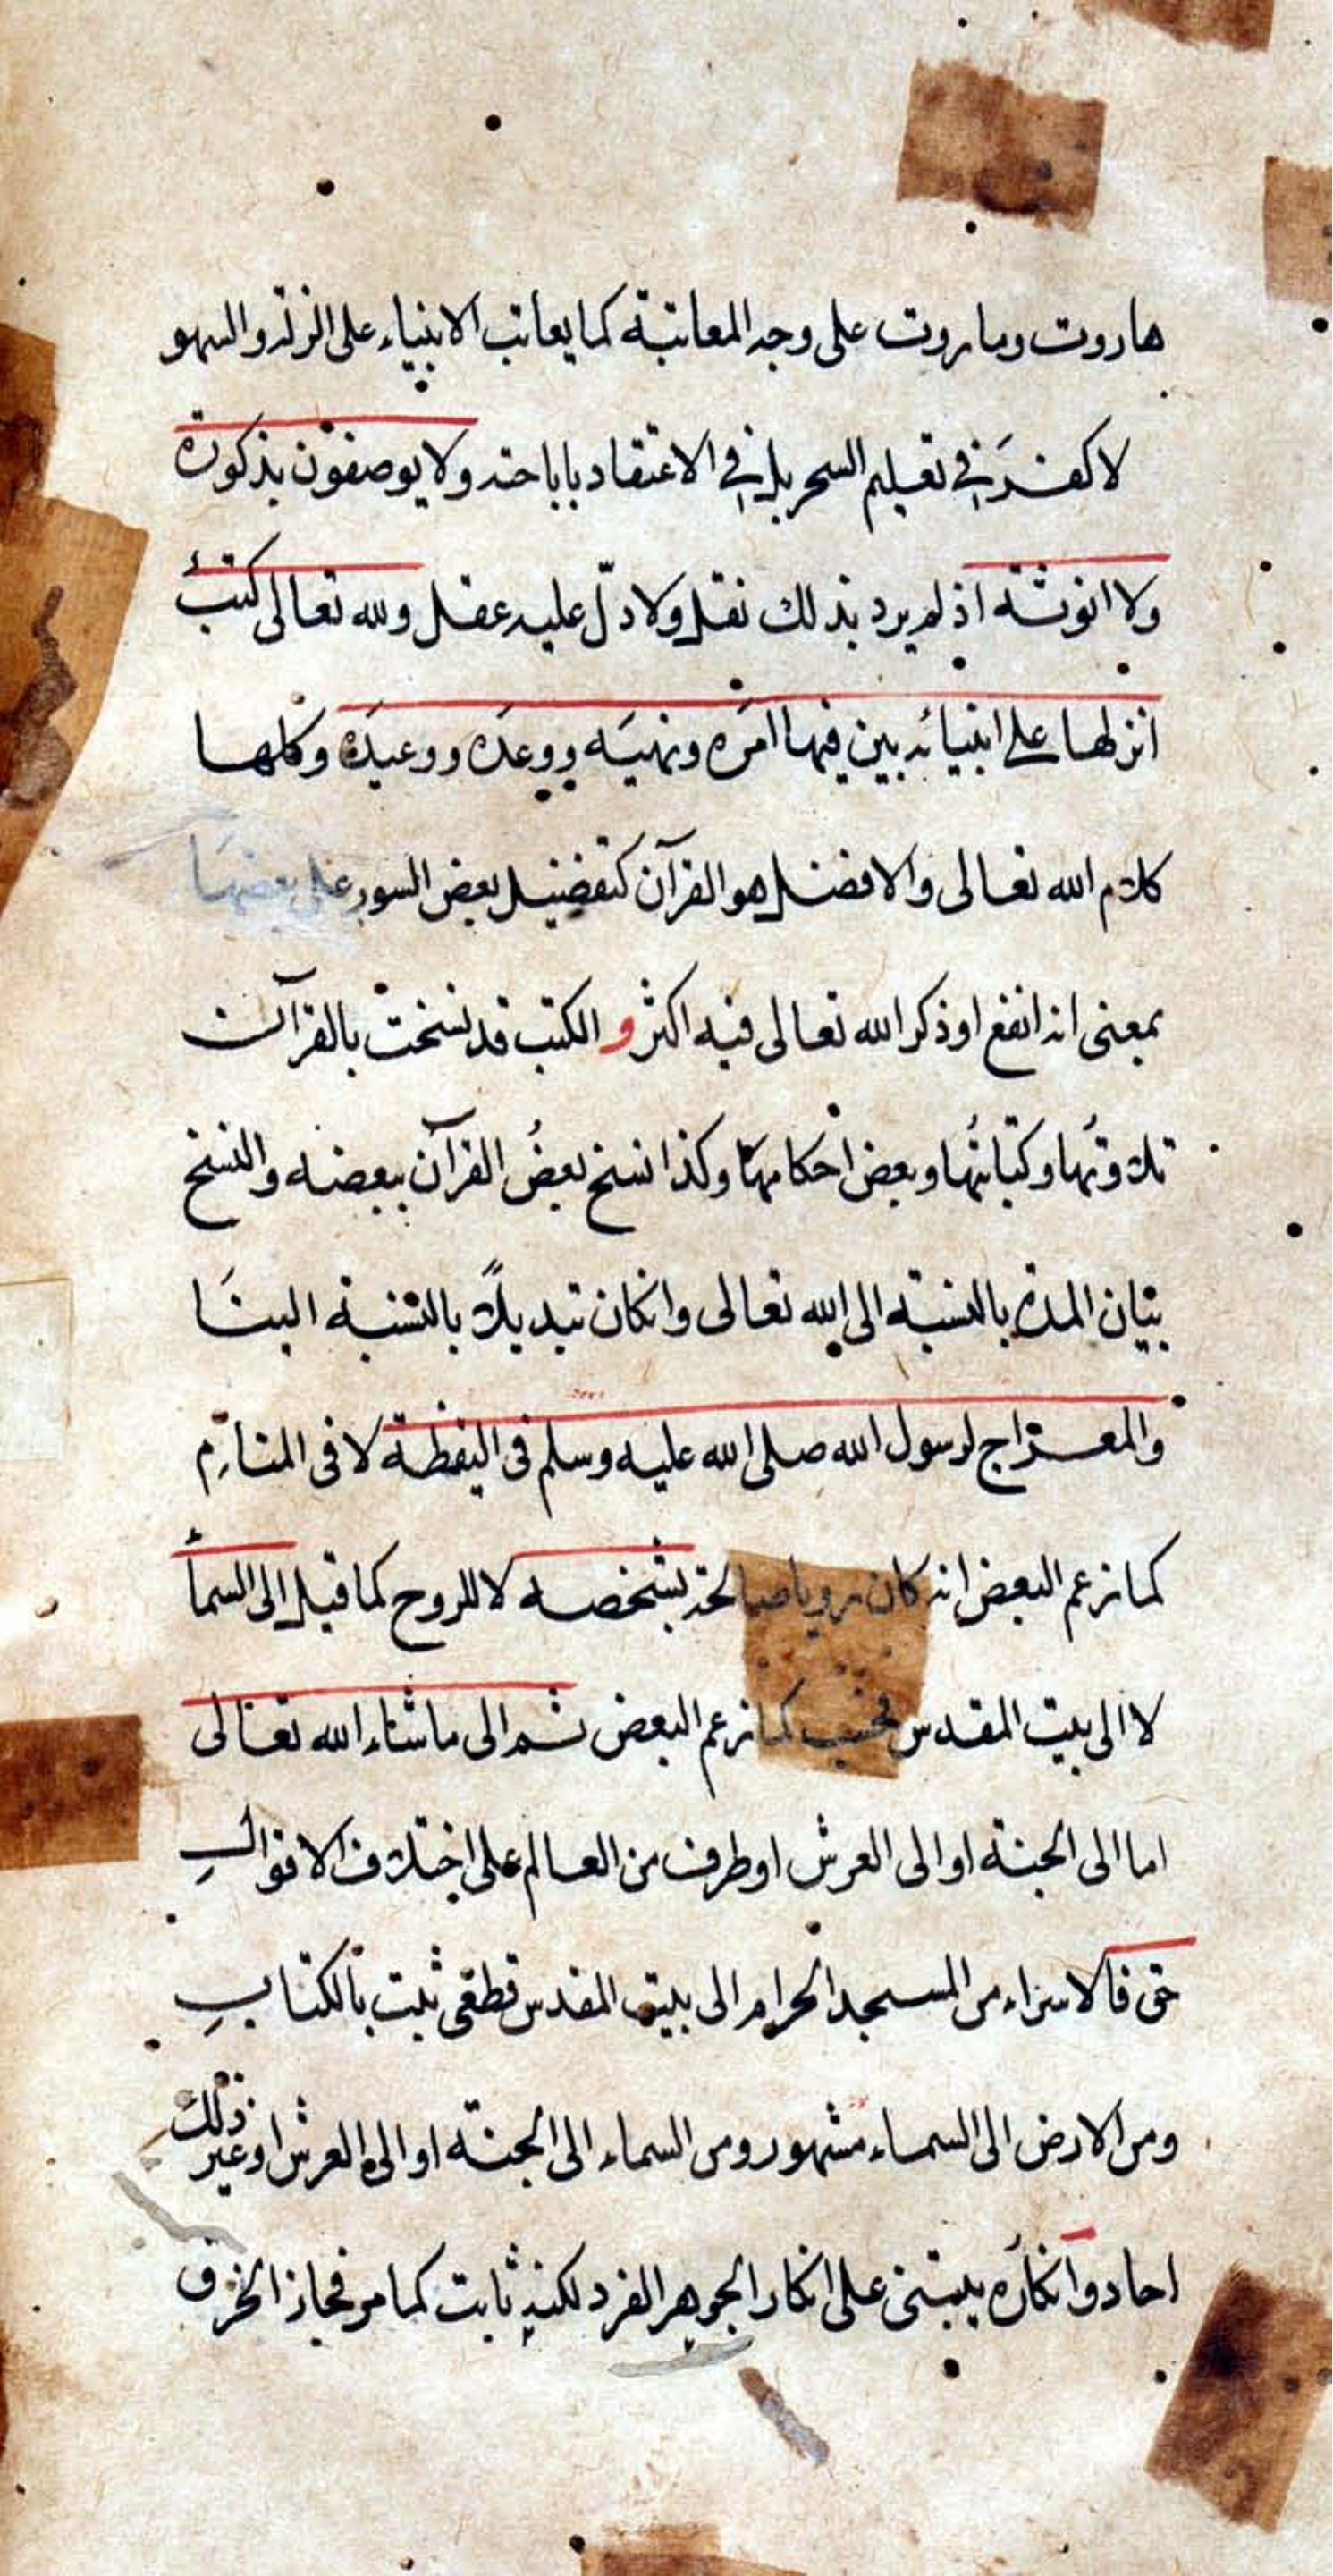 هاروت وماروت على وجه المعاتبة كما يعاتب الانبياء على الزلة والسهو
لا كفر في تعليم السحر بل في الاعتقاد باباحته ولا يوصفون بذكورة
ولا انوثة اذ لم يرد بذلك نقل ولا دل عليه عقل ولله تعالى كتب
انزلها على انبيائه بين فيها امره ونهيه ووعده ووعيده وكلها
كلام الله تعالى والافضل هو القرآن كتفضيل بعض السور على بعضها
بمعنى انه انفع او ذكر الله تعالى فيه اكثر و الكتب قد نسخت بالقرآن
تلاوتها وكتابتها وبعض احكامها وكذا نسخ بعض القرآن ببعضه والنسخ
بيان المدة بالنسبة الى الله تعالى وانكان تبديلاً بالنسبة الينا
والمعراج لرسول الله صلى الله عليه وسلم في اليقظة لا في المنام
كما زعم البعض انه كان رويا صالحة بشخصه لا للروح كما قيل الى السما
لا الى بيت المقدس فحسب كما زعم البعض ثم الى ما شاء الله تعالى
اما الى الجنة او الى العرش او طرف من العالم على اختلاف الاقوال
حق فالاسراء من المسجد الحرام الى بيت المقدس قطعى ثبت بالكتاب
ومن الارض الى السماء مشهور ومن السماء الى الجنة او الى العرش او غير ذلك
احاد وانكاره يبتنى على انكار الجوهر الفرد لكنه ثابت كما مر فجاز الخرق